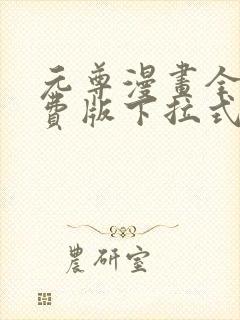 元尊漫畫全
費版下拉式
農研室